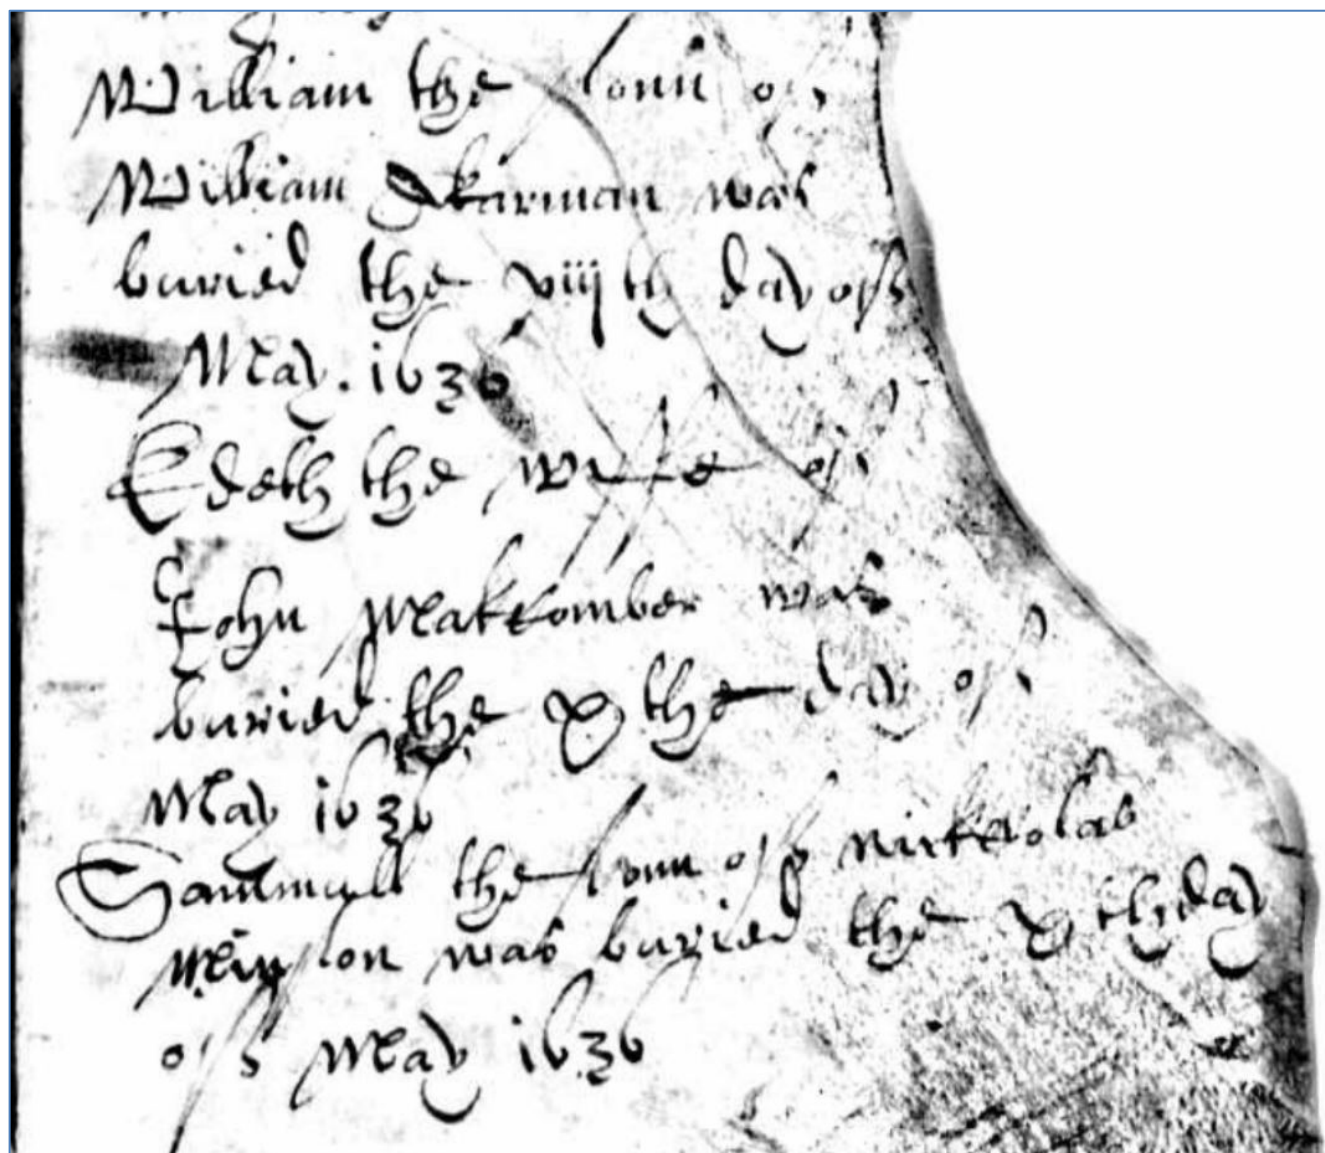 William the sonn off
William Akarman was
buried the viijth day off
May. 1636
Edeth the wyffe off
John Makcomber was
buried the x the day off
May 1636
Sammuell the sonn off Nickcolas
was buried the x thday
off May 1636